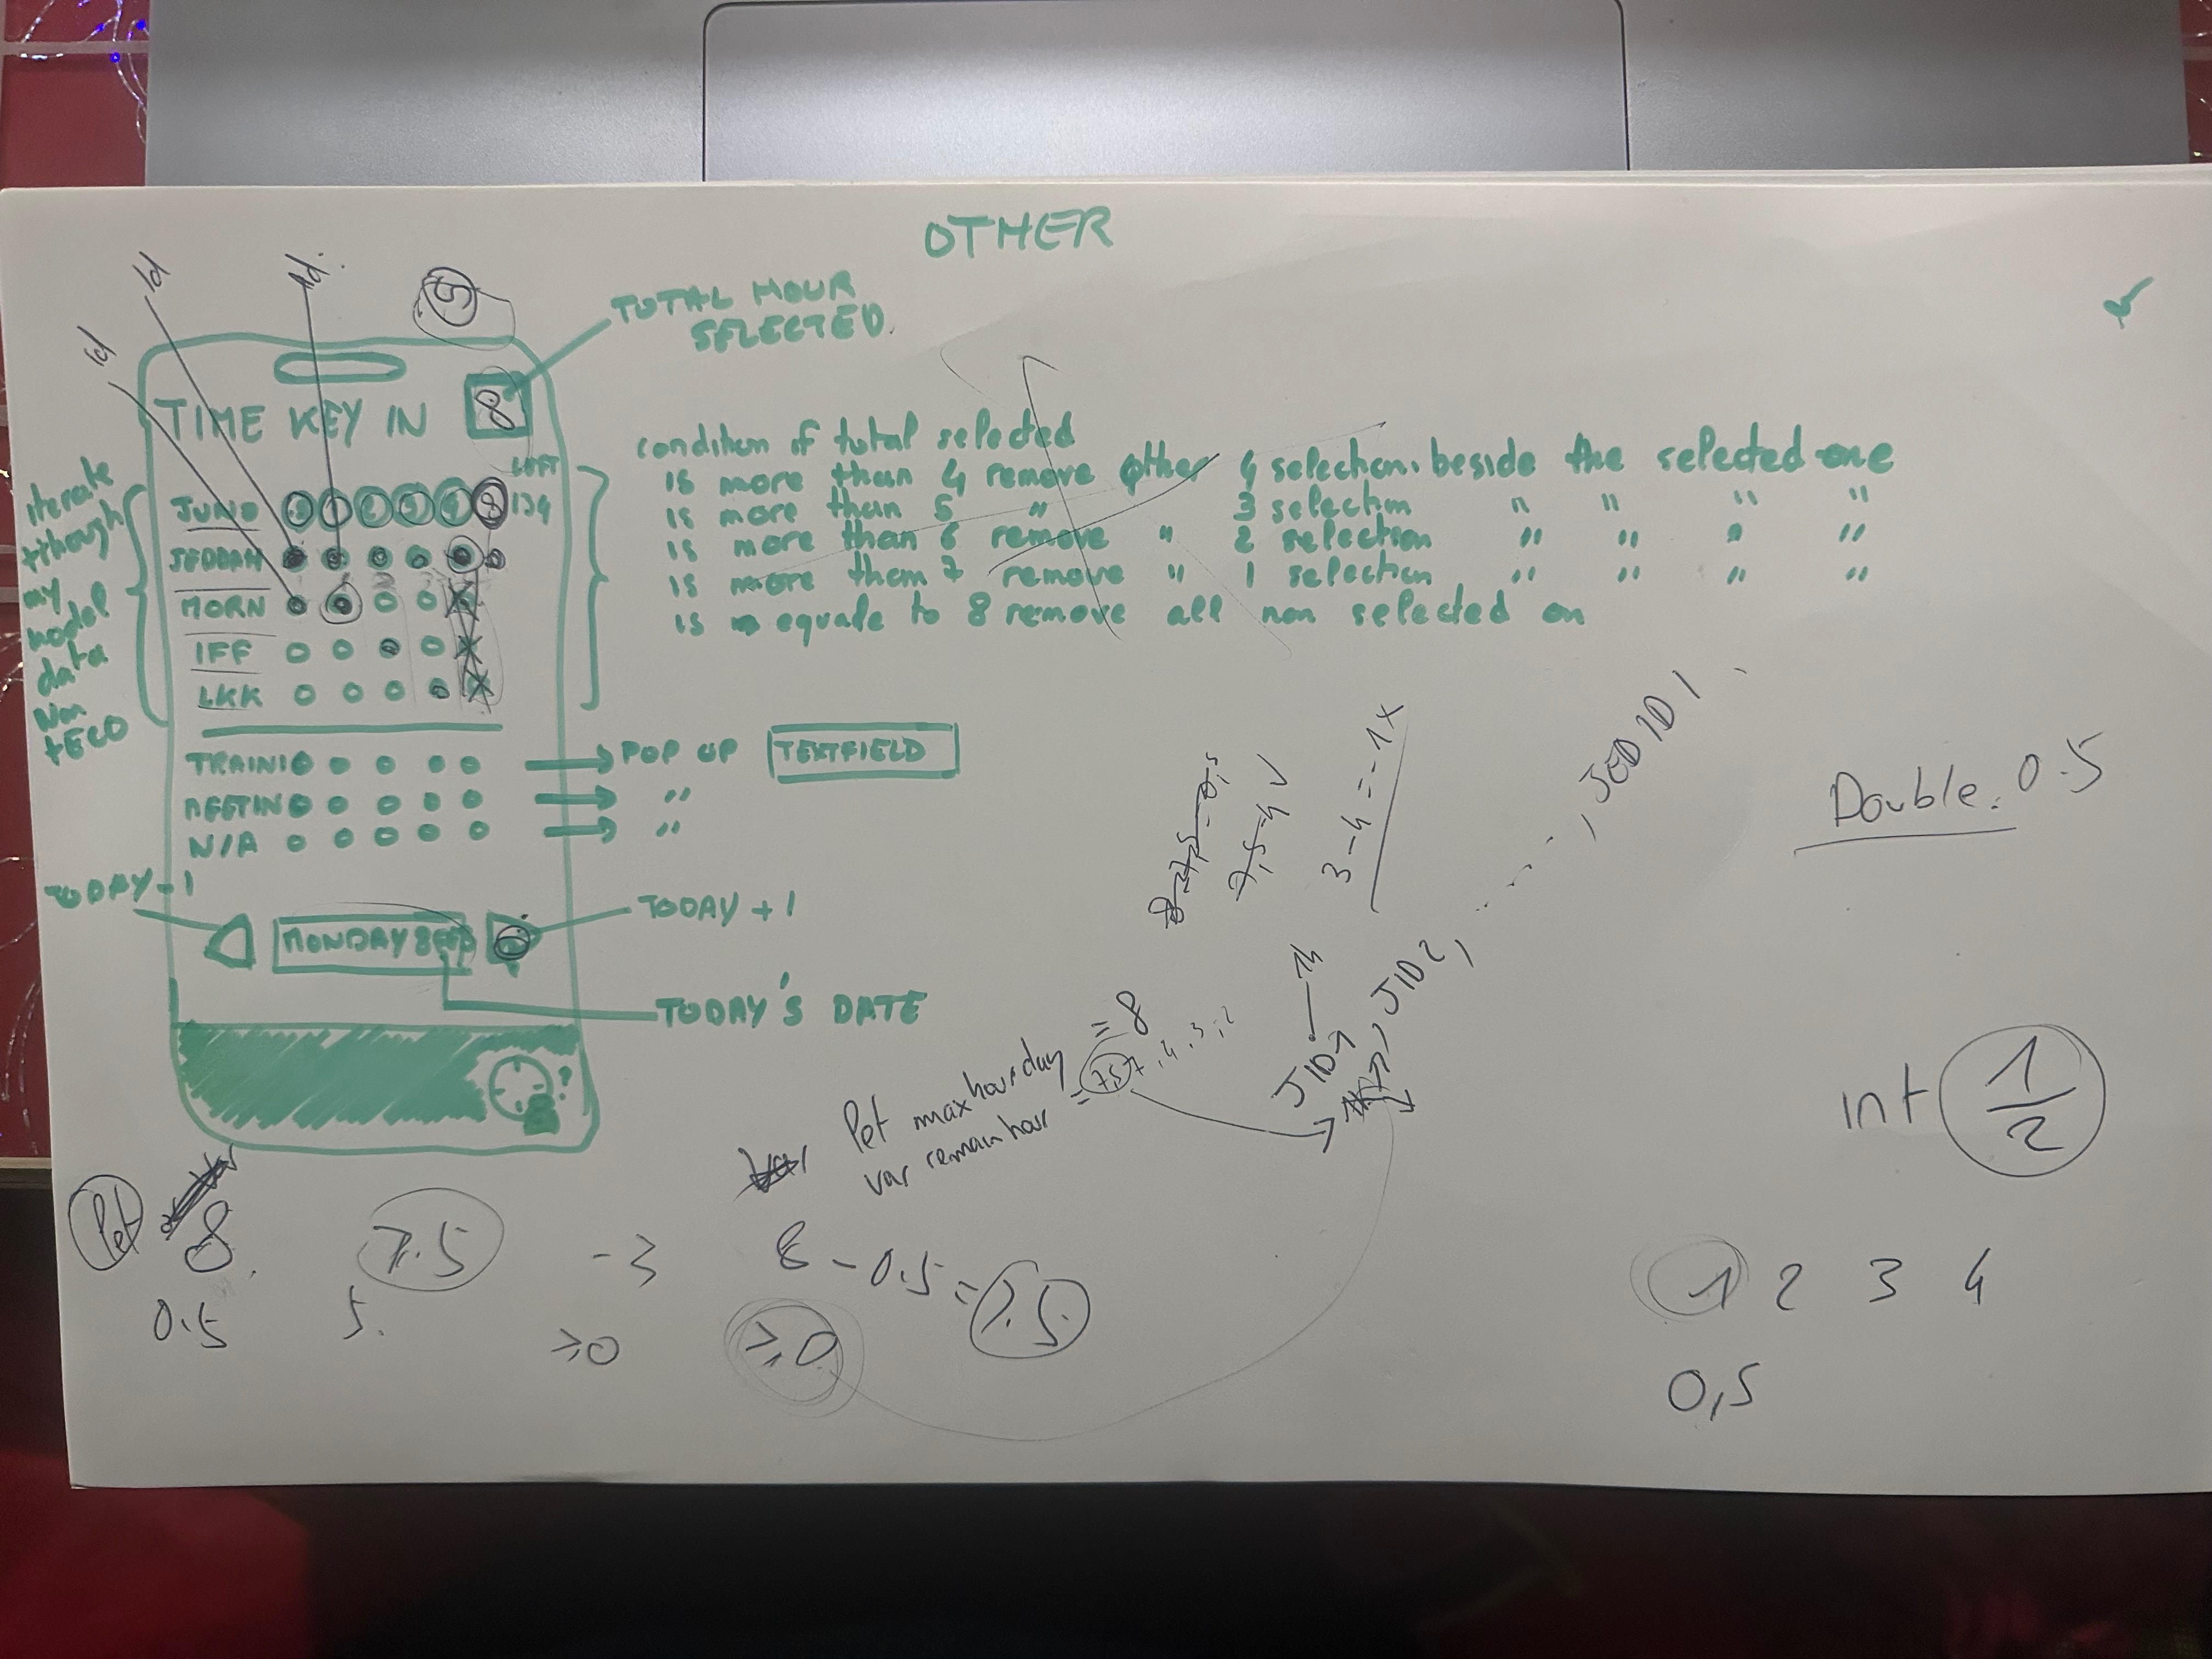 OTHER
Id
Id.
Id
5
TOTAL HOUR
SELECTED.
TIME KEY IN 8
LEFT
iterate
through
my
model
data
Non
TECO
JUNO
JEDDAH
MORN
IFF
LKK
condition of total selected
is more than 4 remove other 4 selection. beside the selected one
is more than 5 " 3 selection " " " "
is more than 6 remove " 2 selection " " " "
is more them 7 remove " 1 selection " " " "
is equale to 8 remove all non selected on
TRAINI
MEETIN
N/A
POP UP TEXTFIELD
"
"
TODAY-1
TODAY+1
MONDAY
TODAY'S DATE
?
8-7,5=0,5
7,5-4 √
3-4=-1 X
JID 1h
, JID2, ....., JEDID1
let maxhourday = 8
var remainhour = 7,5 7, 4, 3, 2
Double: 0.5
int 1
2
let 8 7.5 -3 8-0.5=7.5
0.5 5. ≥0 ≥0
1 2 3 4
0,5